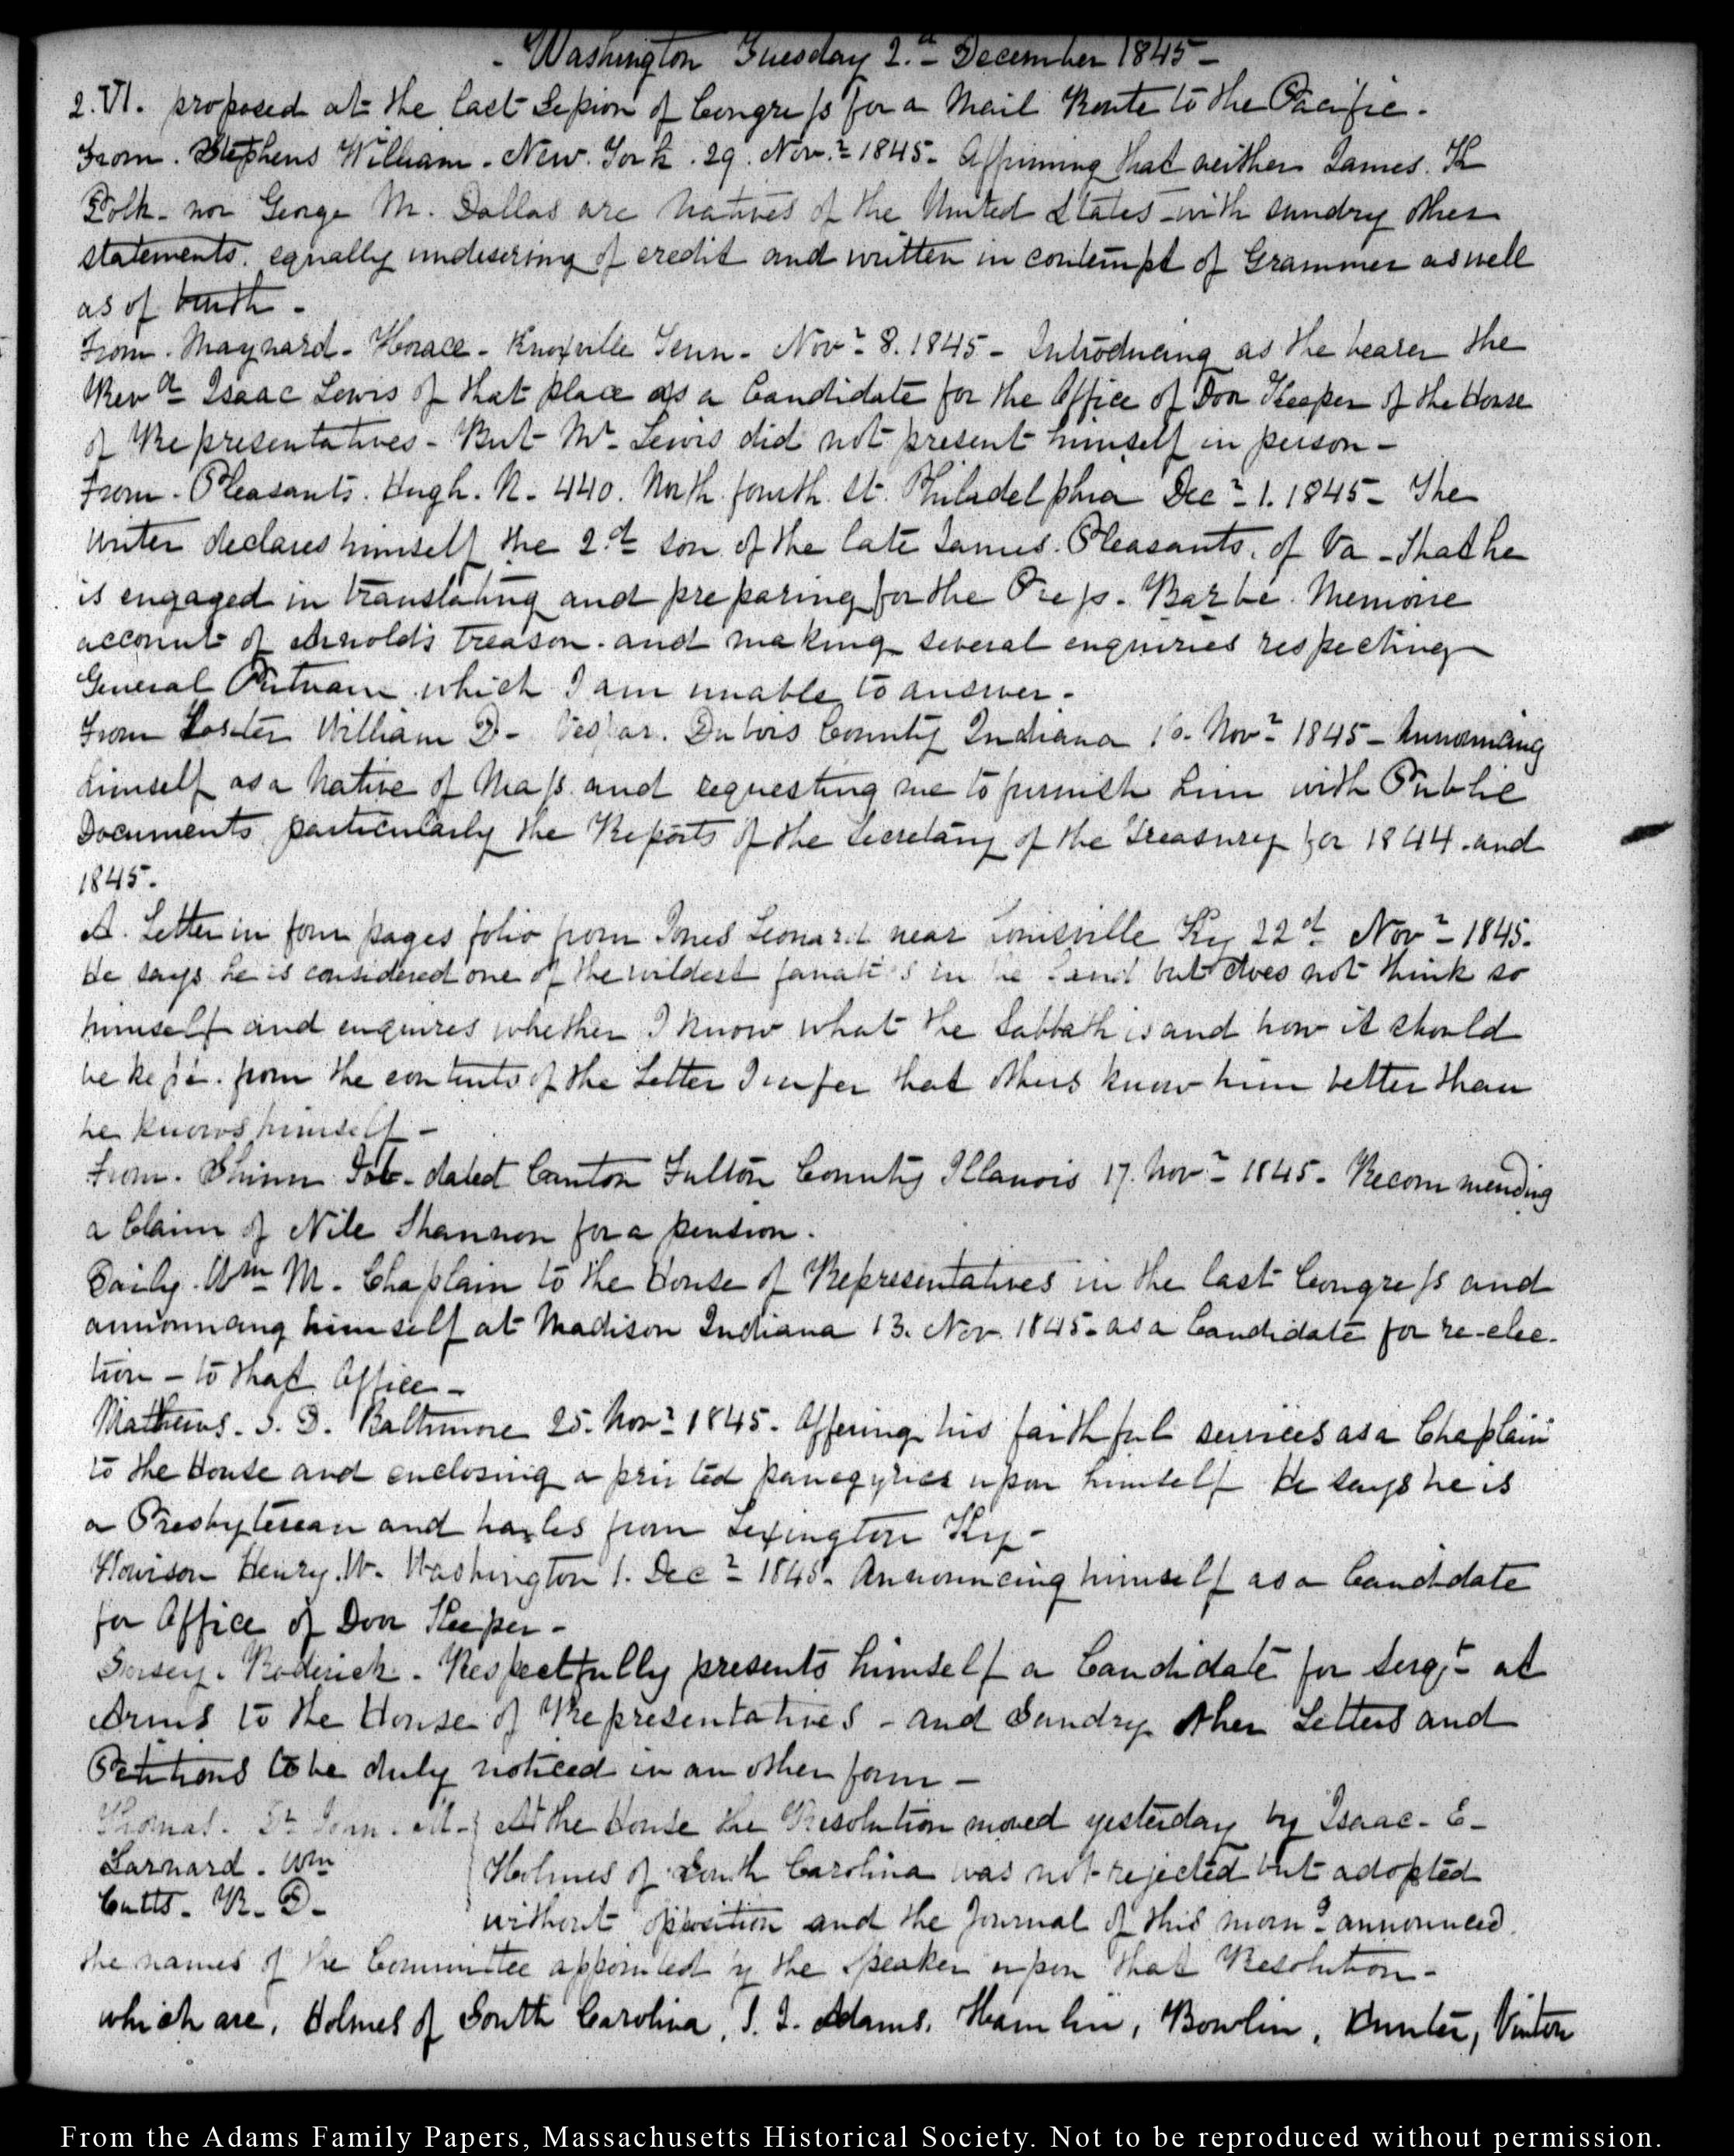 - Washington Tuesday 2.d December 1845 -
2. VI. proposed at the last Session of Congress for a Mail Route to the Pacific.
From. Stephens William. New. York. 29. Novr. 1845. Affirming that neither James. K
Polk. nor George M. Dallas are Natives of the United States with sundry other
statements. equally undeserving of credit and written in contempt of Grammer as well
as of truth.-
From. Maynard. Horace. Knoxville Tenn. Novr. 8. 1845 - Introducing as the bearer the
Revd. Isaac Lewis of that place as a Candidate for the Office of Door Keeper of the House
of Representatives - But Mr. Lewis did not present himself in person -
From. Pleasants. Hugh. R. 440. North. fourth. St. Philadelphia Decr. 1. 1845 - The
writer declares himself the 2.d son of the late James. Pleasants. of Va - That he
is engaged in translating and preparing for the Press. Barbé. Memoire
account of Arnold's treason. and making several enquiries respecting
General Putnam which I am unable to answer.-
From William D- Dubois County Indiana Novr. 1845 - Announcing
himself as a Native of Mass. and requesting me to furnish him with Public
Documents particularly the Reports of the Secretary of the Treasury for 1844. and
1845.
A. Letter in four pages folio from Jones Leonard near Louisville Ky 22d. Novr. 1845.
He says he is considered one of the wildest fanatics in the Land but does not think so
himself and enquires whether I know what the Sabbath is and how it should
be kept. from the contents of the Letter I infer that others know him better than
he knows himself -
From. Shinn Job. dated Canton Fulton County Illanois 17. Novr. 1845. Recommending
a Claim of Nile Shannon for a pension.
Daily. Wm. M. Chaplain to the House of Representatives in the last Congress and
announcing himself at Madison Indiana 13. Nov. 1845. as a Candidate for re-elec-
tion - to that Office -
Mathews. J. D. Baltimore 25. Novr. 1845. Offering his faithful services as a Chaplain
to the House and enclosing a printed panegyrick upon himself He says he is
a Presbyterean and hailes from Lexington Ky -
Howison Henry. W. Washington 1. Decr. 1845. Announcing himself as a Candidate
for Office of Door Keeper -
Dorsey. Roderick. Respectfully presents himself a Candidate for Sergt. at
Arms to the House of Representatives - and Sundry other Letters and
Petitions to be duly noticed in an other form -
Thomas. Dr. John. M. At the House the Resolution moved yesterday by Isaac. E-
Larnard. Wm Holmes of South Carolina was not rejected but adopted
Cutts. R. D. without opposition and the Journal of this morng. announced
the names of the Committee appointed by the Speaker upon that Resolution -
which are, Holmes of South Carolina, J. Q. Adams, Hamlin, Bowlin, Hunter, Vinton
From the Adams Family Papers, Massachusetts Historical Society. Not to be reproduced without permission.